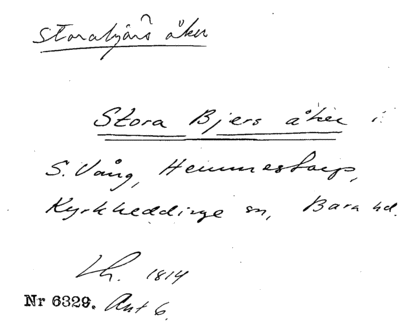 Storabjärs åker
Stora Bjers åker i
S. Vång, Hemmestorp,
Kyrkheddinge sn, Bara hd.
Lh. 1814
Nr 6329. Ant 6.